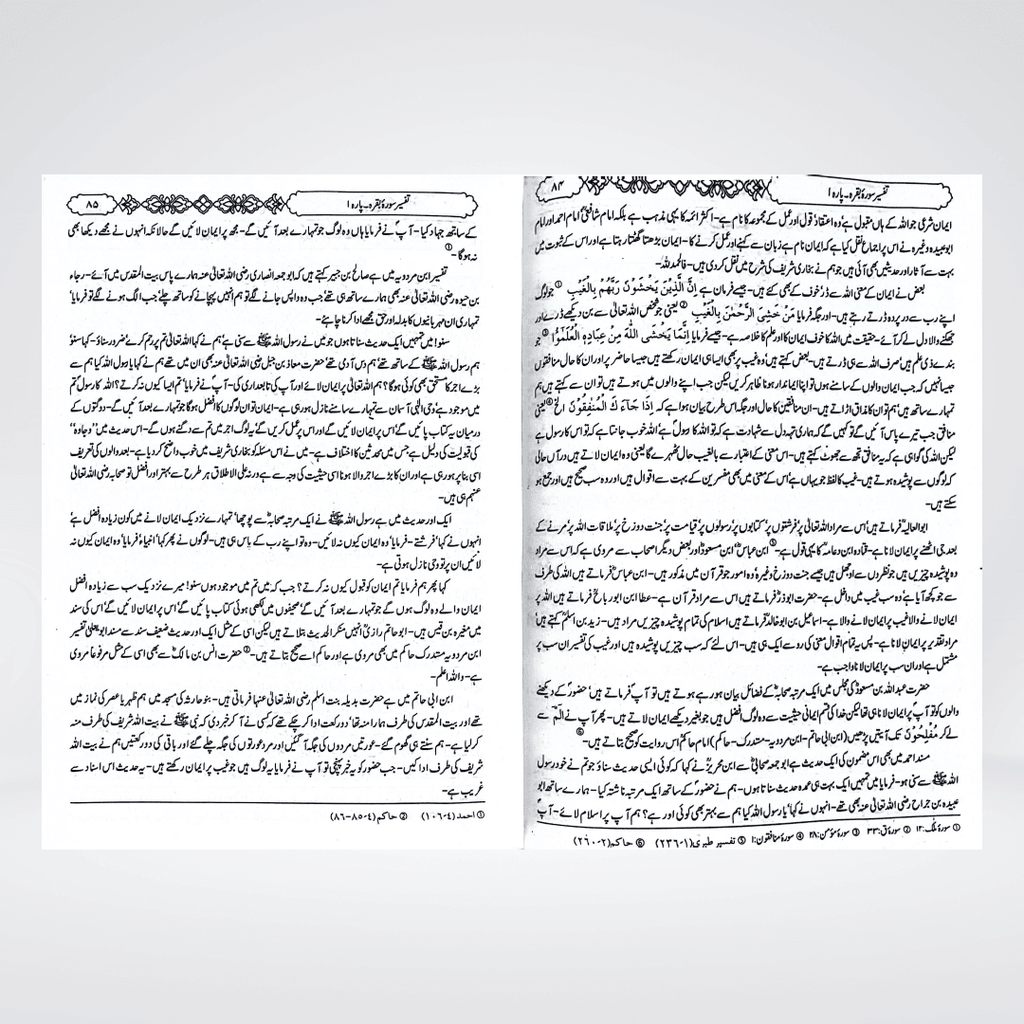 تفسیر سورۂ بقرہ۔ پارہ ۱
۸۴
ایمان شرعی جو اللہ کے ہاں مقبول ہے وہ اعتقاد، قول اور عمل کے مجموعہ کا نام ہے۔ اکثر ائمہ کا یہی مذہب ہے بلکہ امام شافعیؒ امام احمد اور امام
ابو عبیدہ وغیرہ نے اس پر اجماع نقل کیا ہے کہ ایمان نام ہے زبان سے کہنے اور عمل کرنے کا۔ ایمان بڑھتا گھٹتا رہتا ہے اور اس کے ثبوت میں
بہت سے آثار اور حدیثیں بھی آئی ہیں جو ہم نے بخاری شریف کی شرح میں نقل کر دی ہیں۔ فالحمدللہ۔
بعض نے ایمان کے معنی اللہ سے ڈر خوف کے بھی کئے ہیں۔ جیسے فرمان ہے اِنَّ الَّذِیْنَ یَخْشَوْنَ رَبَّهُمْ بِالْغَیْبِ ① جو لوگ
اپنے رب سے در پردہ ڈرتے رہتے ہیں۔ اور جگہ فرمایا مَنْ خَشِیَ الرَّحْمٰنَ بِالْغَیْبِ ② یعنی جو شخص اللہ تعالیٰ سے بن دیکھے ڈرے اور
جھکنے والا دل لے کر آئے۔ حقیقت میں اللہ کا خوف ایمان کا اور علم کا خلاصہ ہے۔ جیسے فرمایا اِنَّمَا یَخْشَی اللّٰهَ مِنْ عِبَادِهِ الْعُلَمٰٓؤُا ③ جو
بندے ذی علم ہیں صرف اللہ سے ہی ڈرتے ہیں۔ بعض کہتے ہیں وہ غیب پر بھی ایسا ہی ایمان رکھتے ہیں جیسا حاضر پر اور ان کا حال منافقوں
جیسا نہیں کہ جب ایمان والوں کے سامنے ہوں تو اپنا ایماندار ہونا ظاہر کریں لیکن جب اپنے والوں میں ہوتے ہیں تو ان سے کہتے ہیں ہم
تمہارے ساتھ ہیں ہم تو ان کا مذاق اڑاتے ہیں۔ ان منافقین کا حال اور جگہ اس طرح بیان ہوا ہے کہ اِذَا جَآءَكَ الْمُنٰفِقُوْنَ الخ ④ یعنی
منافق جب تیرے پاس آئیں گے تو کہیں گے کہ ہماری تہہ دل سے شہادت ہے کہ تو اللہ کا رسول ہے۔ اللہ خوب جانتا ہے کہ تو اس کا رسول ہے
لیکن اللہ کی گواہی ہے کہ یہ منافق تجھ سے جھوٹ کہتے ہیں۔ اس معنی کے اعتبار سے بالغیب حال ٹھہرے گا یعنی وہ ایمان لاتے ہیں درآں حالی
کہ لوگوں سے پوشیدہ ہوتے ہیں۔ غیب کا لفظ جو یہاں ہے اس کے معنی میں بھی مفسرین کے بہت سے اقوال ہیں اور وہ سب صحیح ہیں اور جمع ہو
سکتے ہیں۔
ابو العالیہؒ فرماتے ہیں اس سے مراد اللہ تعالیٰ پر فرشتوں پر کتابوں پر رسولوں پر قیامت پر جنت دوزخ پر ملاقات اللہ پر مرنے کے
بعد جی اٹھنے پر ایمان لانا ہے۔ قتادہ ابن دعامہؒ کا یہی قول ہے۔ ⑤ ابن عباسؓ ابن مسعودؓ اور بعض دیگر اصحاب سے مروی ہے کہ اس سے مراد
وہ پوشیدہ چیزیں ہیں جو نظروں سے اوجھل ہیں جیسے جنت دوزخ وغیرہ وہ امور جو قرآن میں مذکور ہیں۔ ابن عباسؓ فرماتے ہیں اللہ کی طرف
سے جو کچھ آیا ہے وہ سب غیب میں داخل ہے۔ حضرت ابوذرؓ فرماتے ہیں اس سے مراد قرآن ہے۔ عطا ابن ابو رباحؒ فرماتے ہیں اللہ پر
ایمان لانے والا غیب پر ایمان لانے والا ہے۔ اسماعیل بن ابو خالدؒ فرماتے ہیں اسلام کی تمام پوشیدہ چیزیں مراد ہیں۔ زید بن اسلمؒ کہتے ہیں
مراد تقدیر پر ایمان لانا ہے۔ پس یہ تمام اقوال معنی کی رو سے ایک ہی ہیں۔ اس لئے کہ سب چیزیں پوشیدہ ہیں اور غیب کی تفسیر ان سب پر
مشتمل ہے اور ان سب پر ایمان لانا واجب ہے۔
حضرت عبداللہ بن مسعودؓ کی مجلس میں ایک مرتبہ صحابہؓ کے فضائل بیان ہو رہے ہوتے ہیں تو آپؓ فرماتے ہیں حضورؐ کے دیکھنے
والوں کو تو آپؐ پر ایمان لانا ہی تھا لیکن خدا کی قسم ایمانی حیثیت سے وہ لوگ افضل ہیں جو بغیر دیکھے ایمان لاتے ہیں۔ پھر آپؓ نے الٓمّٓ سے
لے کر مُفْلِحُوْنَ تک آیتیں پڑھیں (ابن ابی حاتم۔ ابن مردویہ۔ مستدرک۔ حاکم) امام حاکمؒ اس روایت کو صحیح بتاتے ہیں۔ ⑥
مسند احمد میں بھی اس مضمون کی ایک حدیث ہے ابو جمعہ صحابیؓ سے ابن محیریزؒ نے کہا کہ کوئی ایسی حدیث سناؤ جو تم نے خود رسول
اللہ ﷺ سے سنی ہو۔ فرمایا میں تمہیں ایک بہت ہی عمدہ حدیث سناتا ہوں۔ ہم نے حضورؐ کے ساتھ ایک مرتبہ ناشتہ کیا۔ ہمارے ساتھ ابو
عبیدہ بن جراح رضی اللہ تعالیٰ عنہ بھی تھے۔ انہوں نے کہا یا رسول اللہ کیا ہم سے بہتر بھی کوئی اور ہے؟ ہم آپ پر اسلام لائے۔ آپؐ
① سورۂ ملک:۱۲ ② سورۂ ق:۳۳ ③ سورۂ مؤمن:۲۸ ④ سورۂ منافقون:۱ ⑤ تفسیر طبری (۱-۲۳۶) ⑥ حاکم (۲-۲۶۰)
تفسیر سورۂ بقرہ۔ پارہ ۱
۸۵
کے ساتھ جہاد کیا۔ آپؐ نے فرمایا ہاں وہ لوگ جو تمہارے بعد آئیں گے۔ مجھ پر ایمان لائیں گے حالانکہ انہوں نے مجھے دیکھا بھی
نہ ہوگا۔ ①
تفسیر ابن مردویہ میں ہے صالح بن جبیر کہتے ہیں کہ ابو جمعہ انصاری رضی اللہ تعالیٰ عنہ ہمارے پاس بیت المقدس میں آئے۔ رجاء
بن حیوہ رضی اللہ تعالیٰ عنہ بھی ہمارے ساتھ ہی تھے جب وہ واپس جانے لگے تو ہم انہیں پہچانے کو ساتھ چلے جب الگ ہونے لگے تو فرمایا
تمہاری ان مہربانیوں کا بدلہ اور حق مجھے ادا کرنا چاہئے۔
سنو! میں تمہیں ایک حدیث سناتا ہوں جو میں نے رسول اللہ ﷺ سے سنی ہے ہم نے کہا اللہ تعالیٰ تم پر رحم کرے ضرور سناؤ۔ کہا سنو
ہم رسول اللہ ﷺ کے ساتھ تھے ہم دس آدمی تھے حضرت معاذ بن جبل رضی اللہ تعالیٰ عنہ بھی ان میں تھے ہم نے کہا یا رسول اللہ کیا ہم سے
بڑے اجر کا مستحق بھی کوئی ہوگا؟ ہم اللہ تعالیٰ پر ایمان لائے اور آپ کی تابعداری کی۔ آپؐ نے فرمایا تم ایسا کیوں نہ کرتے؟ اللہ کا رسول تم
میں موجود ہے وحی الٰہی آسمان سے تمہارے سامنے نازل ہو رہی ہے۔ ایمان تو ان لوگوں کا افضل ہوگا جو تمہارے بعد آئیں گے۔ دو گتوں کے
درمیان یہ کتاب پائیں گے اس پر ایمان لائیں گے اور اس پر عمل کریں گے یہ لوگ اجر میں تم سے دگنے ہوں گے۔ اس حدیث میں ”وجادہ“
کی قبولیت کی دلیل ہے جس میں محدثین کا اختلاف ہے۔ میں نے اس مسئلہ کو بخاری شریف میں خوب واضح کر دیا ہے۔ بعد والوں کی تعریف
اسی بنا پر ہو رہی ہے اور ان کا بڑے اجر والا ہونا اسی حیثیت کی وجہ سے ہے ورنہ علی الاطلاق ہر طرح سے بہتر اور افضل تو صحابہ رضی اللہ تعالیٰ
عنہم ہی ہیں۔
ایک اور حدیث میں ہے رسول اللہ ﷺ نے ایک مرتبہ صحابہؓ سے پوچھا، تمہارے نزدیک ایمان لانے میں کون زیادہ افضل ہے؟
انہوں نے کہا ”فرشتے“۔ فرمایا وہ ایمان کیوں نہ لائیں۔ وہ تو اپنے رب کے پاس ہی ہیں۔ لوگوں نے پھر کہا انبیاءؑ فرمایا وہ ایمان کیوں نہ
لائیں ان پر تو وحی نازل ہوتی ہے۔
کہا پھر ہم فرمایا تم ایمان کو قبول کیوں نہ کرتے؟ جب کہ میں تم میں موجود ہوں سنو! میرے نزدیک سب سے زیادہ افضل
ایمان والے وہ لوگ ہوں گے جو تمہارے بعد آئیں گے صحیفوں میں لکھی ہوئی کتاب پائیں گے اس پر ایمان لائیں گے اس کی سند
میں مغیرہ بن قیس ہیں۔ ابو حاتم رازیؒ انہیں منکر الحدیث بتلاتے ہیں لیکن اسی کے مثل ایک اور حدیث ضعیف سند سے مسند ابو یعلیٰ تفسیر
ابن مردویہ مستدرک حاکم میں بھی مروی ہے اور حاکم اسے صحیح بتاتے ہیں۔ ② حضرت انس بن مالکؓ سے بھی اسی کے مثل مرفوعاً مروی
ہے۔ واللہ اعلم۔
ابن ابی حاتم میں ہے حضرت بدیلہ بنت اسلم رضی اللہ تعالیٰ عنہا فرماتی ہیں۔ بنو حارثہ کی مسجد میں ہم ظہر یا عصر کی نماز میں
تھے اور بیت المقدس کی طرف ہمارا منہ تھا، دو رکعت ادا کر چکے تھے کہ کسی نے آ کر خبر دی کہ نبی ﷺ نے بیت اللہ شریف کی طرف منہ
کر لیا ہے۔ ہم سنتے ہی گھوم گئے۔ عورتیں مردوں کی جگہ آ گئیں اور مرد عورتوں کی جگہ چلے گئے اور باقی کی دو رکعتیں ہم نے بیت اللہ
شریف کی طرف ادا کیں۔ جب حضورؐ کو یہ خبر پہنچی تو آپ نے فرمایا یہ لوگ ہیں جو غیب پر ایمان رکھتے ہیں۔ یہ حدیث اس اسناد سے
غریب ہے۔
① احمد (۴-۱۰۶) ② حاکم (۴-۸۵-۸۶)